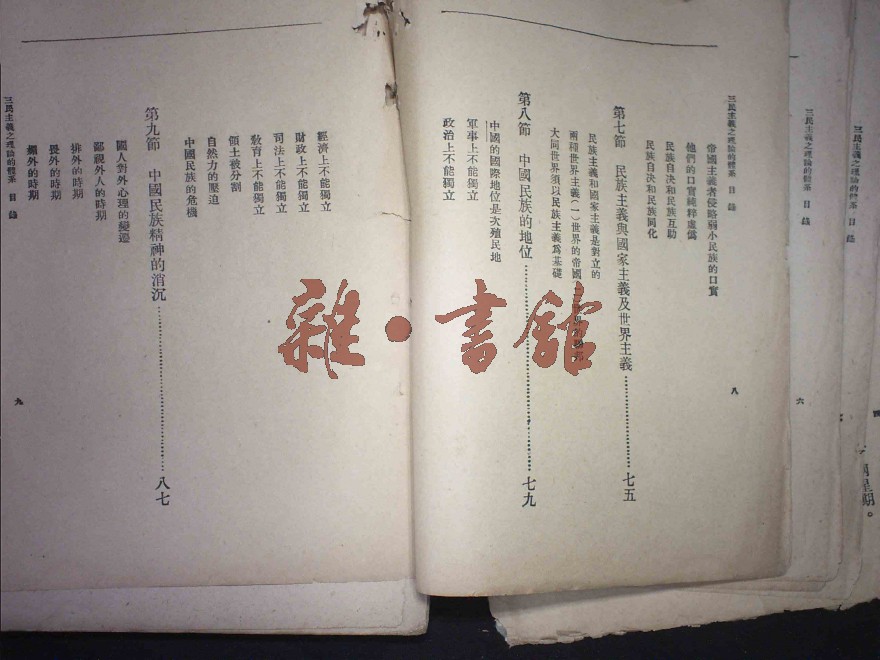 三民主義之理論的體系 目錄
三民主義之理論的體系 目錄
六
三民主義之理論的體系 目錄
八
帝國主義者侵略弱小民族的口實
他們的口實純粹虛僞
民族自決和民族互助
民族自決和民族同化
第七節 民族主義與國家主義及世界主義……七五
民族主義和國家主義是對立的
兩種世界主義(一)世界的帝國
大同世界須以民族主義爲基礎
第八節 中國民族的地位……七九
中國的國際地位是次殖民地
軍事上不能獨立
政治上不能獨立
經濟上不能獨立
財政上不能獨立
司法上不能獨立
敎育上不能獨立
領土被分割
自然力的壓迫
中國民族的危機
第九節 中國民族精神的消沉……八七
國人對外心理的變遷
鄙視外人的時期
排外的時期
畏外的時期
媚外的時期
三民主義之理論的體系 目錄
九
雜·書館